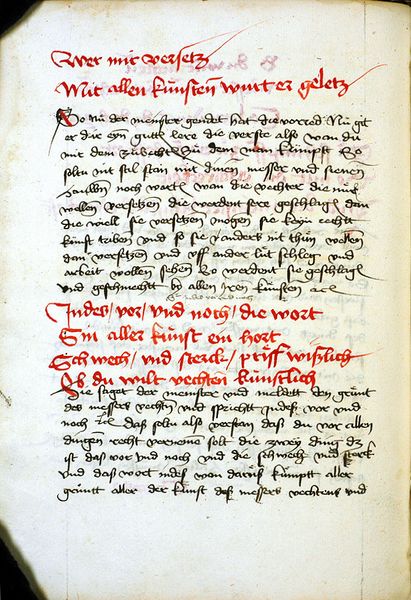 Wer mir versetz
Mit allen künsten wurt er geletz
So nü der meinster geendet hat die vorred Nü git
er dir eyn gutte lere die verste also wan dü
mit dem zu vechten Zu dem man kümpst So
soltu nit stil stan mit dinem messer vnd sienen
heuwen noch warten wan die vechter die nür
wollen versetzen die werdent sere geschlagen dan
die wiell sie versetzen mogen sie keyn rechtt
künst triben vnd so sie anders nit thün wollen
dan versetzen vnd vff ander lüt schleg vnd
arbeit wollen sehen So werdent sie geschlagen
vnd geschmecht by allen iren künsten
Indes / vor / vnd noch / die wort
Sin aller künst ein hort
Schwech / vnd sterck / prüff wißlich
Ob du wilt vechten künstlich
Hie saget der meinster vnd meldett den grünt
des messers vechten vnd sprichtt Indes vor vnd
noch Daß soltu also verstan daß du vor allen
dingen recht vernomen solt die zwey ding daz
ist daß vor vnd noch vnd die schwech vnd sterck
vnd daß wort indes von darüß kümptt aller
grüntt aller der künst deß messers vechtens vnd